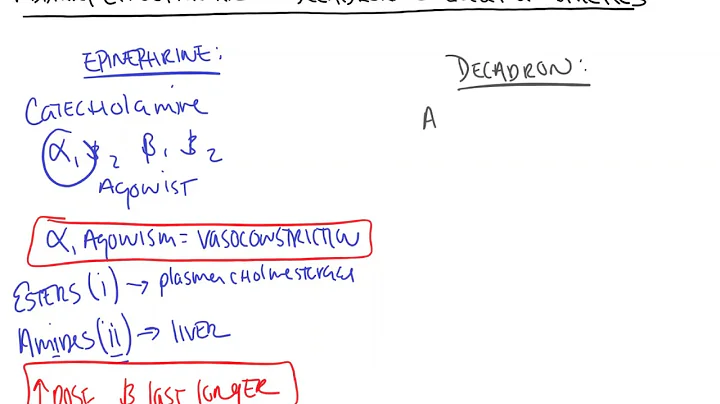 EPINEPHRINE:
CATECHOLAMINE
α, $2 β, $2
AGONIST
α, AGONISM = VASOCONSTRICTION
ESTERS (i) → plasma cholinesterase
Amides (ii) → LIVER
↑ DOSE $ last longer
DECADRON:
A